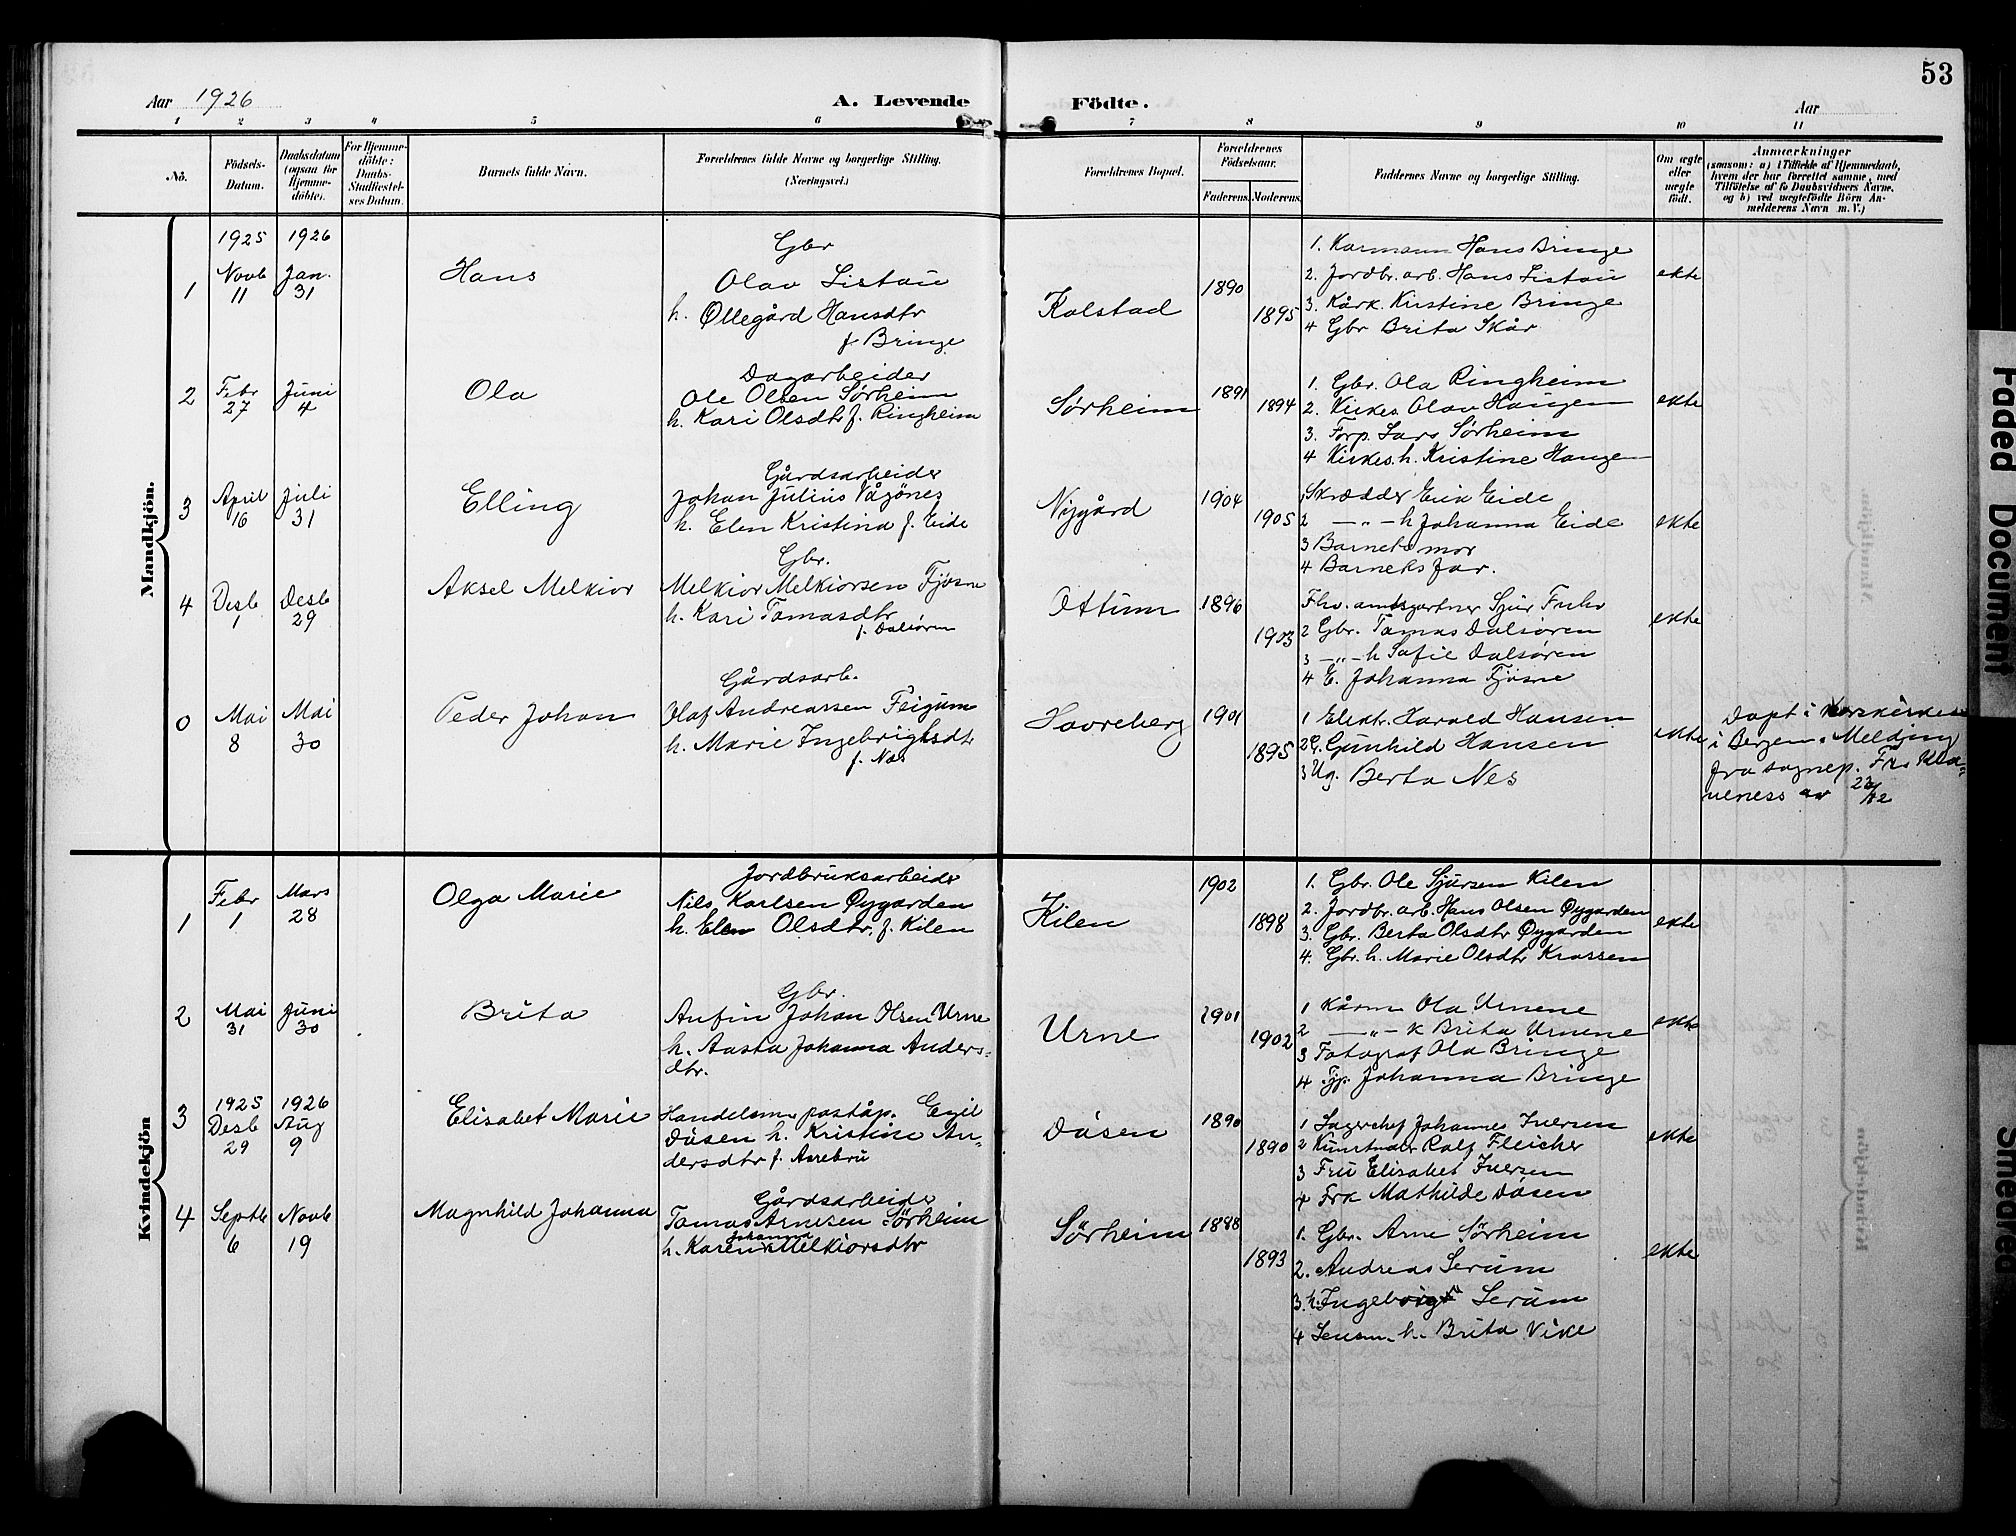 53
Aar 1926
A. Levende Födte.
Aar
1 2 3 4 5 6 7 8 9 10 11
No.
Födsels-Datum.
Daabsdatum (ogsaa for Hjemme-döbte).
For Hjemme-döbte: Daabs-Stadfæstel-ses Datum.
Barnets fulde Navn.
Forældrenes fulde Navne og borgerlige Stilling. (Næringsvei.)
Forældrenes Bopæl.
Forældrenes Födselsaar.
Faderens. Moderens.
Faddernes Navne og borgerlige Stilling.
Om ægte eller uægte födt.
Anmærkninger
(saasom: a) i Tilfælde af Hjemmedaab, hvem der har forrettet samme, med Tilföielse af to Daabsvidners Navne, og b) ved uægtefödte Börn An-melderens Navn m. V.)
Mandkjön.
1
1925 Novb 11
1926 Jan. 31
Hans
Gbr
Olav Listou
h. Øllegård Hansdtr
f. Bringe
Kolstad
1890
1895
1. Karmann Hans Bringe
2. Jordbr. arb. Hans Listou
3. Kårk. Kirstine Bringe
4 Gbr Brita Skår
ekte
2
Febr 27
Juni 4
Ola
Dagarbeider
Ole Olsen Sørheim
h. Kari Olsdtr f. Ringheim
Sørheim
1891
1894
1. Gbr. Ola Ringheim
2. Kirkes. Olav Haugen
3. Forp. Lars Sørheim
4 Kirkes. h. Kristine Haugen
ekte
3
April 16
Juli 31
Elling
Gårdsarbeider
Johan Julius Vågönes
h. Elen Kristina f. Eide
Nygård
1904
1905
1 Skrædder Erik Eide
2 —„— h Johanna Eide
3 Barnets mor
4 Barnets far.
ekte
4
Desb 1
Desb 29
Aksel Melkior
Gbr.
Melkior Melkiorsen Fjøsne
h. Kari Tomasdtr
f. Dalsøren
Ottum
1896
1903
Fhv. amtsgartner Sjur Fuhr
2 Gbr. Tomas Dalsøren
3 —„— h Sofie Dalsøren
4 E. Johanna Fjøsne
ekte
0
Mai 8
Mai 30
Peder Johan
Gårdsarb.
Olaf Andreassen Feigum
h. Marie Ingebrigtsdtr
f. Nes
Havreberg
1901
1895
1 Elektr. Harald Hansen
2 G. Gunhild Hansen
3 Ug. Berta Nes
ekte
Døpt i Korskirken
i Bergen. Melding
fra sognep.
Kvindekjön
1
Febr 1
Mars 28
Olga Marie
Jordbruksarbeider
Nils Karlsen Øygarden
h. Elen Olsdtr. f. Kilen
Kilen
1902
1898
1. Gbr. Ole Sjursen Kilen
2. Jordbr. arb. Hans Olsen Øygarden
3. Gbr. Berta Olsdtr Øygarden
4. Gbr. h. Marie Olsdtr Krossen
ekte
2
Mai 31
Juni 30
Brita
Gbr.
Anfin Johan Olsen Urne
h. Aasta Johanna Anders-
dtr.
Urne
1901
1902
1 Kårm Ola Urnene
2 —„— k Brita Urnene
3 Fotograf Ola Bringe
4 Johanna Bringe
ekte
3
1925 Desb 29
1926 Aug 9
Elisabet Marie
Handelsm. poståp. Egil
Døsen h. Kristine An-
dersdtr f. Aarebru
Døsen
1890
1890
1 Lagerchef Johannes Iversen
2 Kunstmaler Rolf Fleicher
3 Fru Elisabet Iversen
4 Frk Mathilde Døsen
ekte
4
Septb 6
Novb 19
Magnhild Johanna
Gårdsarbeider
Tomas Arnesen Sørheim
h. Karen Johanna Melkiorsdtr
Sørheim
1888
1893
1. Gbr. Arne Sørheim
2. Andreas Lerum
3. h. Ingeborg Lerum
4 Lensm. h. Brita Vike
ekte
Faded Document
Smeared